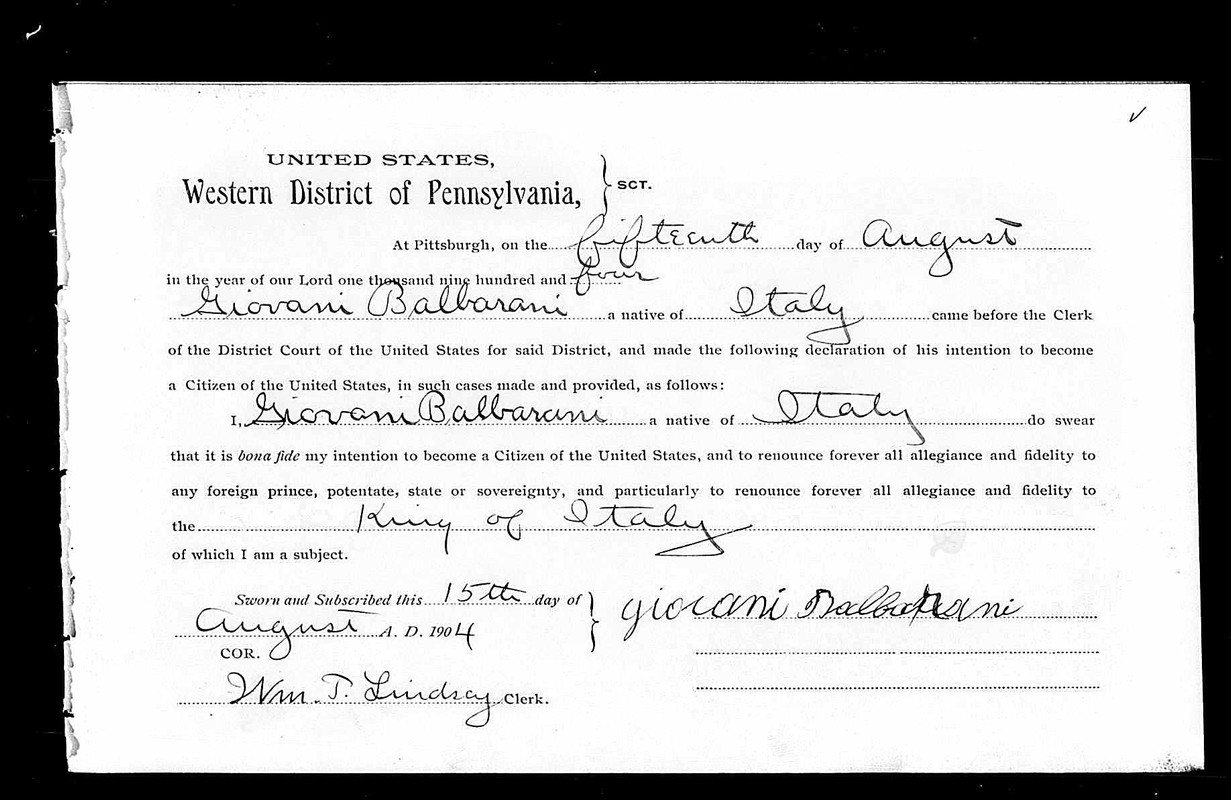 UNITED STATES,
Western District of Pennsylvania, } SCT.
At Pittsburgh, on the fifteenth day of August
in the year of our Lord one thousand nine hundred and four
Giovani Balbarani a native of Italy came before the Clerk
of the District Court of the United States for said District, and made the following declaration of his intention to become
a Citizen of the United States, in such cases made and provided, as follows:
I, Giovani Balbarani a native of Italy do swear
that it is bona fide my intention to become a Citizen of the United States, and to renounce forever all allegiance and fidelity to
any foreign prince, potentate, state or sovereignty, and particularly to renounce forever all allegiance and fidelity to
the King of Italy
of which I am a subject.
Sworn and Subscribed this 15th day of } giovani Balbarani
August A. D. 1904
COR.
Wm. T. Lindsay Clerk.